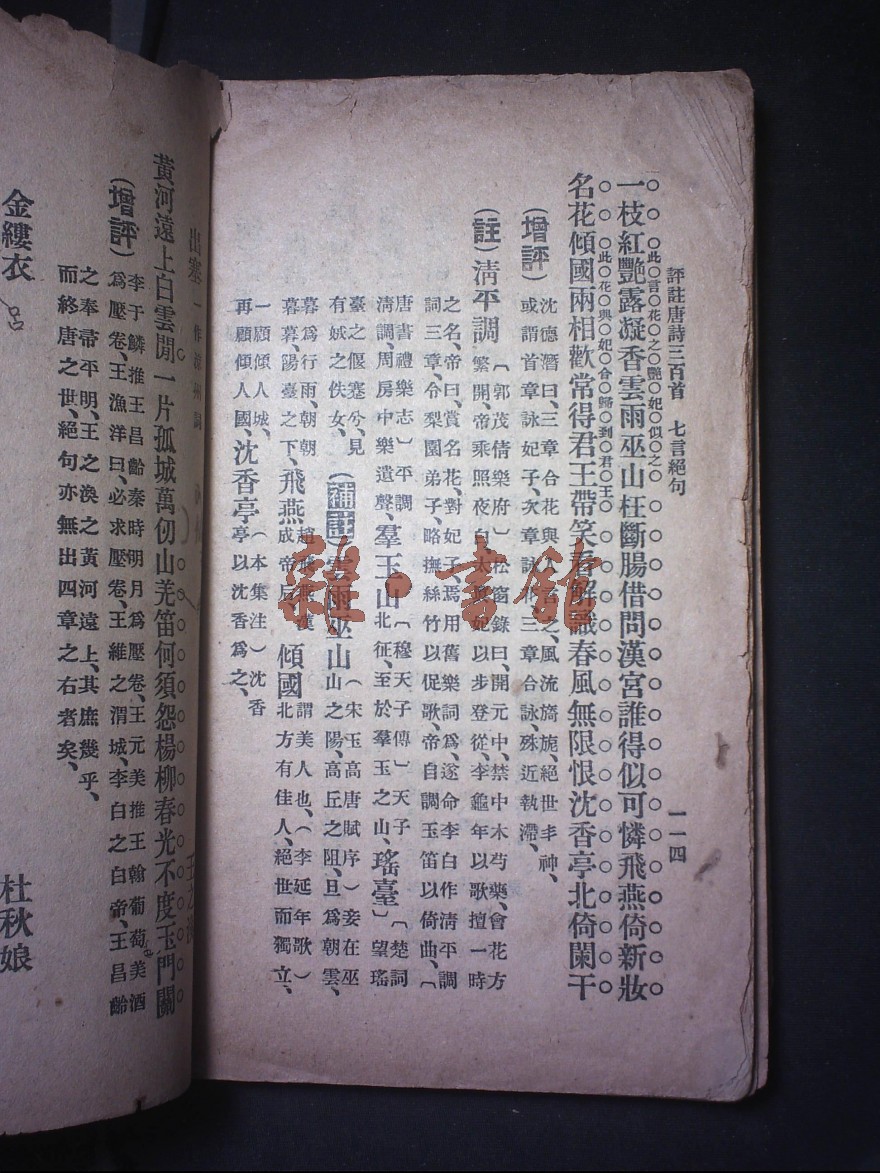 評註唐詩三百首 七言絕句 一一四
一枝紅艷露凝香雲雨巫山枉斷腸借問漢宮誰得似可憐飛燕倚新妝
此言花之艷妃似之
名花傾國兩相歡常得君王帶笑看解識春風無限恨沈香亭北倚闌干
此花與妃合歸到君王
(增評)
沈德潛曰、三章合花與人言之、風流旖旎、絕世丰神、
或謂首章詠妃子、次章詠花、三章合詠、殊近執滯、
(註)清平調
〔郭茂倩樂府〕松窗錄曰、開元中、禁中木芍藥、會花方
繁開、帝乘照夜白、太眞妃以步登從、李龜年以歌擅一時
之名、帝曰、賞名花、對妃子、焉用舊樂詞爲、遂命李白作淸平調
詞三章、令梨園弟子、略撫絲竹以促歌、帝自調玉笛以倚曲、〔
唐書禮樂志〕平調
淸調、周房中樂遺聲、
羣玉山
〔穆天子傳〕天子
北征、至於羣玉之山、
瑤臺
〔楚詞〕望瑤
臺之偃蹇兮、見
有娀之佚女、
(補註)雲雨巫山
(宋玉高唐賦序)妾在巫
山之陽、高丘之阻、旦爲朝雲、
暮爲行雨、朝朝
暮暮、陽臺之下、
飛燕
趙飛燕漢
成帝后、
傾國
謂美人也、(李延年歌)
北方有佳人、絕世而獨立、
一顧傾人城、
再顧傾人國、
沈香亭
(本集注)沈香
亭以沈香爲之、
出塞 一作涼州詞 王之渙
黃河遠上白雲閒一片孤城萬仞山羌笛何須怨楊柳春光不度玉門關
(增評)
李于鱗推王昌齡秦時明月爲壓卷、王元美推王翰葡萄美酒
爲壓卷、王漁洋曰、必求壓卷、王維之渭城、李白之白帝、王昌齡
之奉帚平明、王之渙之黃河遠上、其庶幾乎、
而終唐之世、絕句亦無出四章之右者矣、
金縷衣 杜秋娘
雜·書館